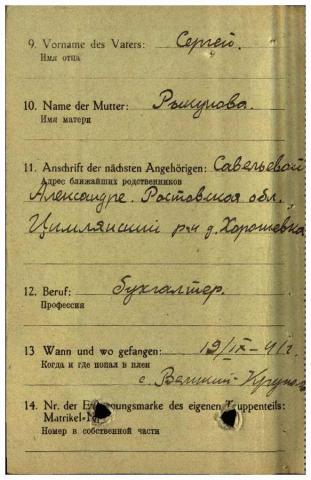 9. Vorname des Vaters: Сергей.
Имя отца
10. Name der Mutter: Рыкунова.
Имя матери
11. Anschrift der nächsten Angehörigen: Савельевой
Адрес ближайших родственников
Александре. Ростовская обл.,
Цимлянский р-н д. Хорошевка
12. Beruf: бухгалтер.
Профессия
13 Wann und wo gefangen: 19/IX-41г.
Когда и где попал в плен
с. Великий-
14. Nr. der des eigenen
Номер в собственной части